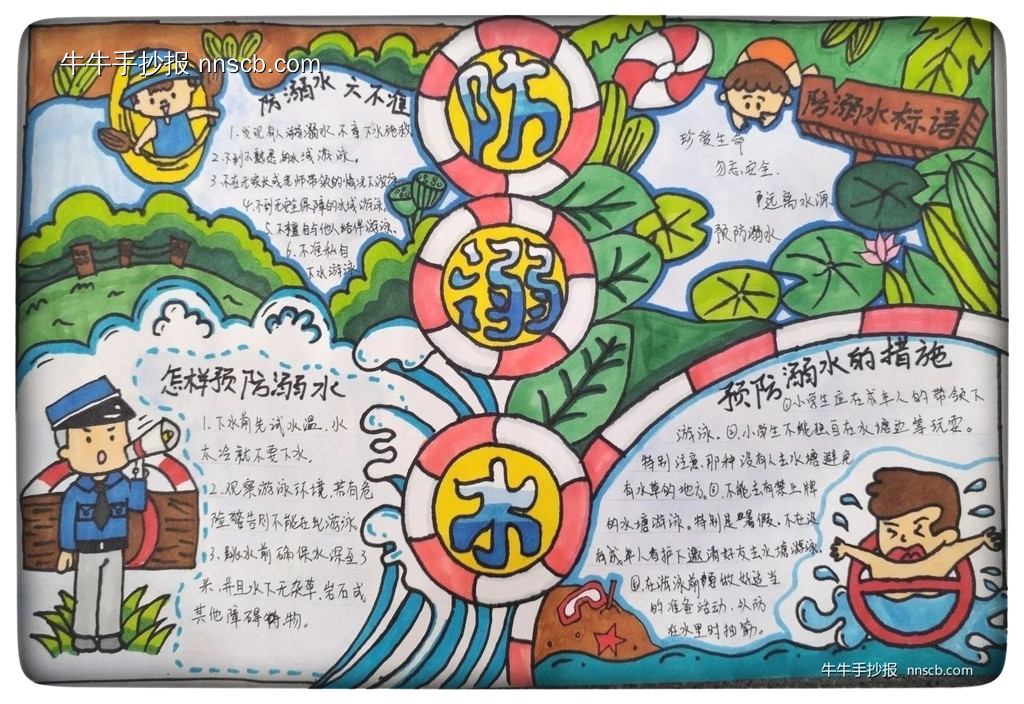 牛牛手抄报 nnscb.com
防
溺
水
防溺水六不准
1.发现有人溺水,不盲下水施救
2.不到不熟悉的水域游泳。
3.不在无家长或老师带领的情况下游泳
4.不到无安全保障的水域游泳。
5.不擅自与他人结伴游泳。
6.不准私自
下水游泳
防溺水标语
珍爱生命
勿忘安全.
远离水源
预防溺水
怎样预防溺水
1.下水前先试水温.水
太冷就不要下水。
2.观察游泳环境,若有危
险警告则不能在此游泳
3.跳水前确保水深至3
米,并且水下无杂草,岩石或
其他障碍物。
预防溺水的措施
①小学生应在成年人的带领下
游泳。②小学生不能独自在水塘边等玩耍。
特别注意,那种没有人去水塘避免
有水草的地方。不能去有禁止牌
的水塘游泳。特别是暑假,不在没
有成年人看护下邀请好友去水塘游泳。
在游泳前做好适当
的准备活动,以防
在水里时抽筋。
牛牛手抄报 nnscb.com